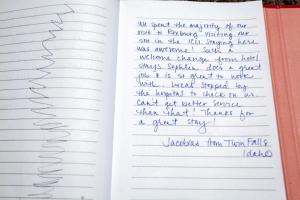 We spent the majority of our
visit to Rexburg visiting our
son in the ICU. Staying here
was awesome! Such a
welcome change from hotel
stays. Sophia does a great
job & is so great to work
with. Lucas stopped by
the hospital to check on us.
Can't get better service
than that! Thanks for
a great stay!
Jacobsons from Twin Falls
Idaho